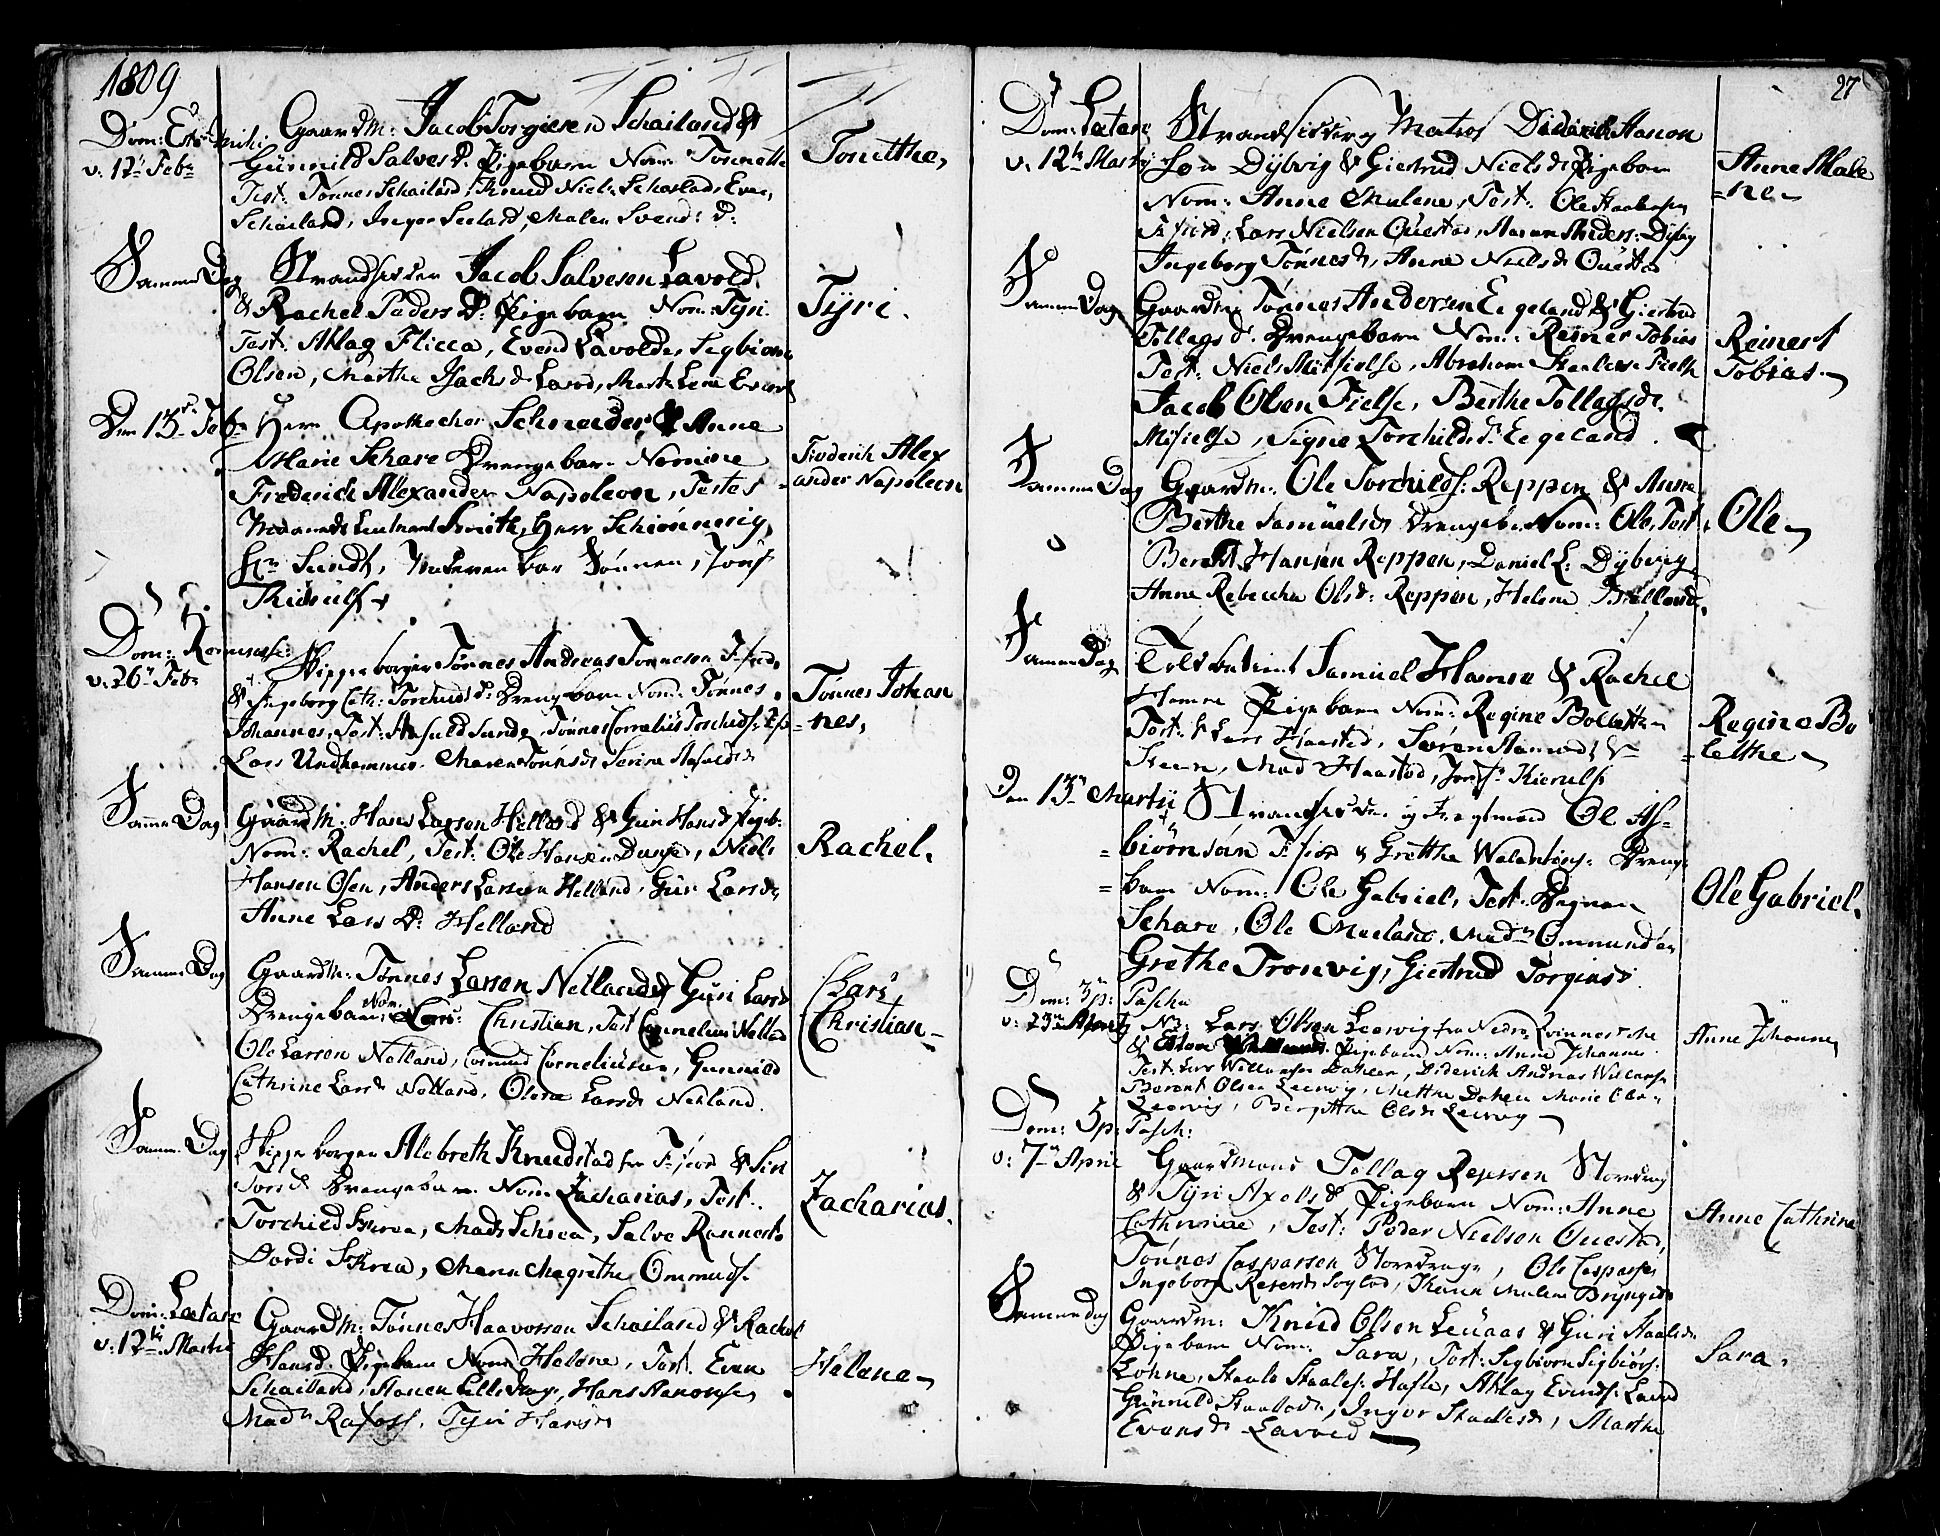 1809
Dom: Esto mihi
v. 12te Febr
Gaardm: Jacob Torgiesen Schailand &
Gunnild Salves D. Pigebarn Nom: Tonnette
Test: Tønnes Schailand, Knud Niels: Schailand, Even
Schailand, Inger Seeland, Malen Svends D:
Tonethe,
Samme Dag
Strandsidder Jacob Salvesen Lavold
& Rachel Peders D: Pigebarn Nom: Tyri.
Test: Atlag Flicca, Evend Lavolde, Segbiorn
Olsen, Marthe Isachs d Land, Marte Lene Evends
Tyri.
Den 13de Febr
Herr Apothecher Schneider & Anne
Marie Schare Drengebarn Nomine
Frederich Alexander Napoleon, Testes
Lieutnant Smith, Herr Schiønnesig,
Hr Sundt,
Frederik Alex
ander Napoleon
Dom: Reminisc:
v. 26de Febr
Skippeborger Tønnes Andreas Tonnesen F:fiord,
& Ingeborg Cath: Torchilds D: Drengebarn Nom: Tønnes
Johannes, Test: Asfuld Sunde, Tønnes Cornelius Torchilds:
Lars Undhammer. Maren Tønnesd: Serine Asfulds d
Tønnes Johan
=nes,
Samme Dag
Gaardm: Hans Larsen Helland & Guri Hans d Pigeb:
Nom: Rachel, Test: Ole Hansen Dunsæ, Niels
Hansen Osen, Anders Larsen Helland, Guri Larsd,
Anne Lars D: Helland
Rachel.
Samme Dag
Gaardm: Tønnes Larsen Netland & Guri Larsd
Drengebarn: Nom. Lars: Christian, Test Cornelius Netland
Ole Larsen Netland, Cornelius: Gunnild
Cathrine Lars d Netland, Olene Larsd: Netland.
Lars
Christian
Samme Dag
Skippeborger Alebreth Knudstad fra F:fiord & Siri
Tors d Drengebarn Nom: Zacharias, Test:
Torchild Skrea, Mads Schrea, Salve Rannestad
Dordi Skrea, Maren Magrethe Ommunds.
Zacharias.
Dom: Lætare
v: 12te Martii
Gaardm: Tønnes Haavorsen Schailand & Rachel
Hansd. Pigebarn Nom: Helene, Test: Even
Schailand, Hans Aanonsen,
Madm Raforss, Tyri Hansd
Helene
27
Dom: Lætare
v. 12te Martii
Strandsidder og Matros Diderich Hanson
Dybvig & Giertrud Niels d Pigebarn
Nom: Anne Malene, Test: Ole Haaversen
F:fiord, Lars Nielsen Ouestad, Aanen Anders: Dybvig
Ingeborg Tønnes d, Anne Niels d: Ouestad
Anne Male
=ne
Samme Dag
Gaardm: Tønnes Andersen Eegeland & Giertrud
Tollags d. Drengebarn Nom: Reinert Tobias
Test: Niels Misfielse, Abraham Fielse
Jacob Olsen Fielse, Berthe Tollagsd.
Misfielse, Signe Torchildsd. Eegeland.
Reinert
Tobias
Samme Dag
Gaardm: Ole Torchilds: Reppen & Anne
Berthe Samuels d Drengeb: Nom: Ole, Test:
Berent Hansen Reppen, Daniel L: Dybvig,
Anne Rebeccha Olsd: Reppen, Helene Brelland.
Ole
Samme Dag
Toldbetient Samuel Hamre & Rachel
Hamre Pigebarn Nom: Regine Bolette
Test: Lars Haasted, Søren
Steen, Mad Haastad, Jomfr Kierulf
Regine Bo
=letthe
Den 13de Martii
Strandsidder og Ole As=
=biørnsøn F:fior & Grethe Walentins: Dreng=
=barn Nom: Ole Gabriel, Test: Degnen
Schare, Ole Meeland, Madm Ommundsen
Grethe Tronvig, Giertrud Torgiusd.
Ole Gabriel.
Dom: 3 p: Pascha
v: 23de Aprilis
Nr: Lars Olsen Leervig fra Nedre Qvinnesdahl
& Pigebarn Nom: Anne Johanne
Test: Lars Willumsen Dahlen, Diderick Andreas Willumsen
Berent Olsen Leervig, Mette Dahlen, Marie Ols
Leervig, Bergitthe Ols d: Leervig
Anne Johanne
Dom: 5 p: Pasch:
v: 7de April
Gaardmand Tollag Repssen Stordrag
& Tyri Axels d Pigebarn Nom: Anne
Cathrine, Test: Peder Nielsen Ouestad,
Tønnes Caspersen Stordrage, Ole Caspersen
Ingeborg Refersd Foglad, Karen Malene Brynigsd
Anne Cathrine
Samme Dag
Gaardm: Knud Olsen Leuaas & Guri Staalesd
Pigebarn Nom: Sara, Test: Segbiorn Sigbiørs:
Lohne, Staale Staales: Hafte, Atlag Evends: Lavold
Gunnild Staalesd, Inger Staalesd, Marthe
Evensd Lavold
Sara.